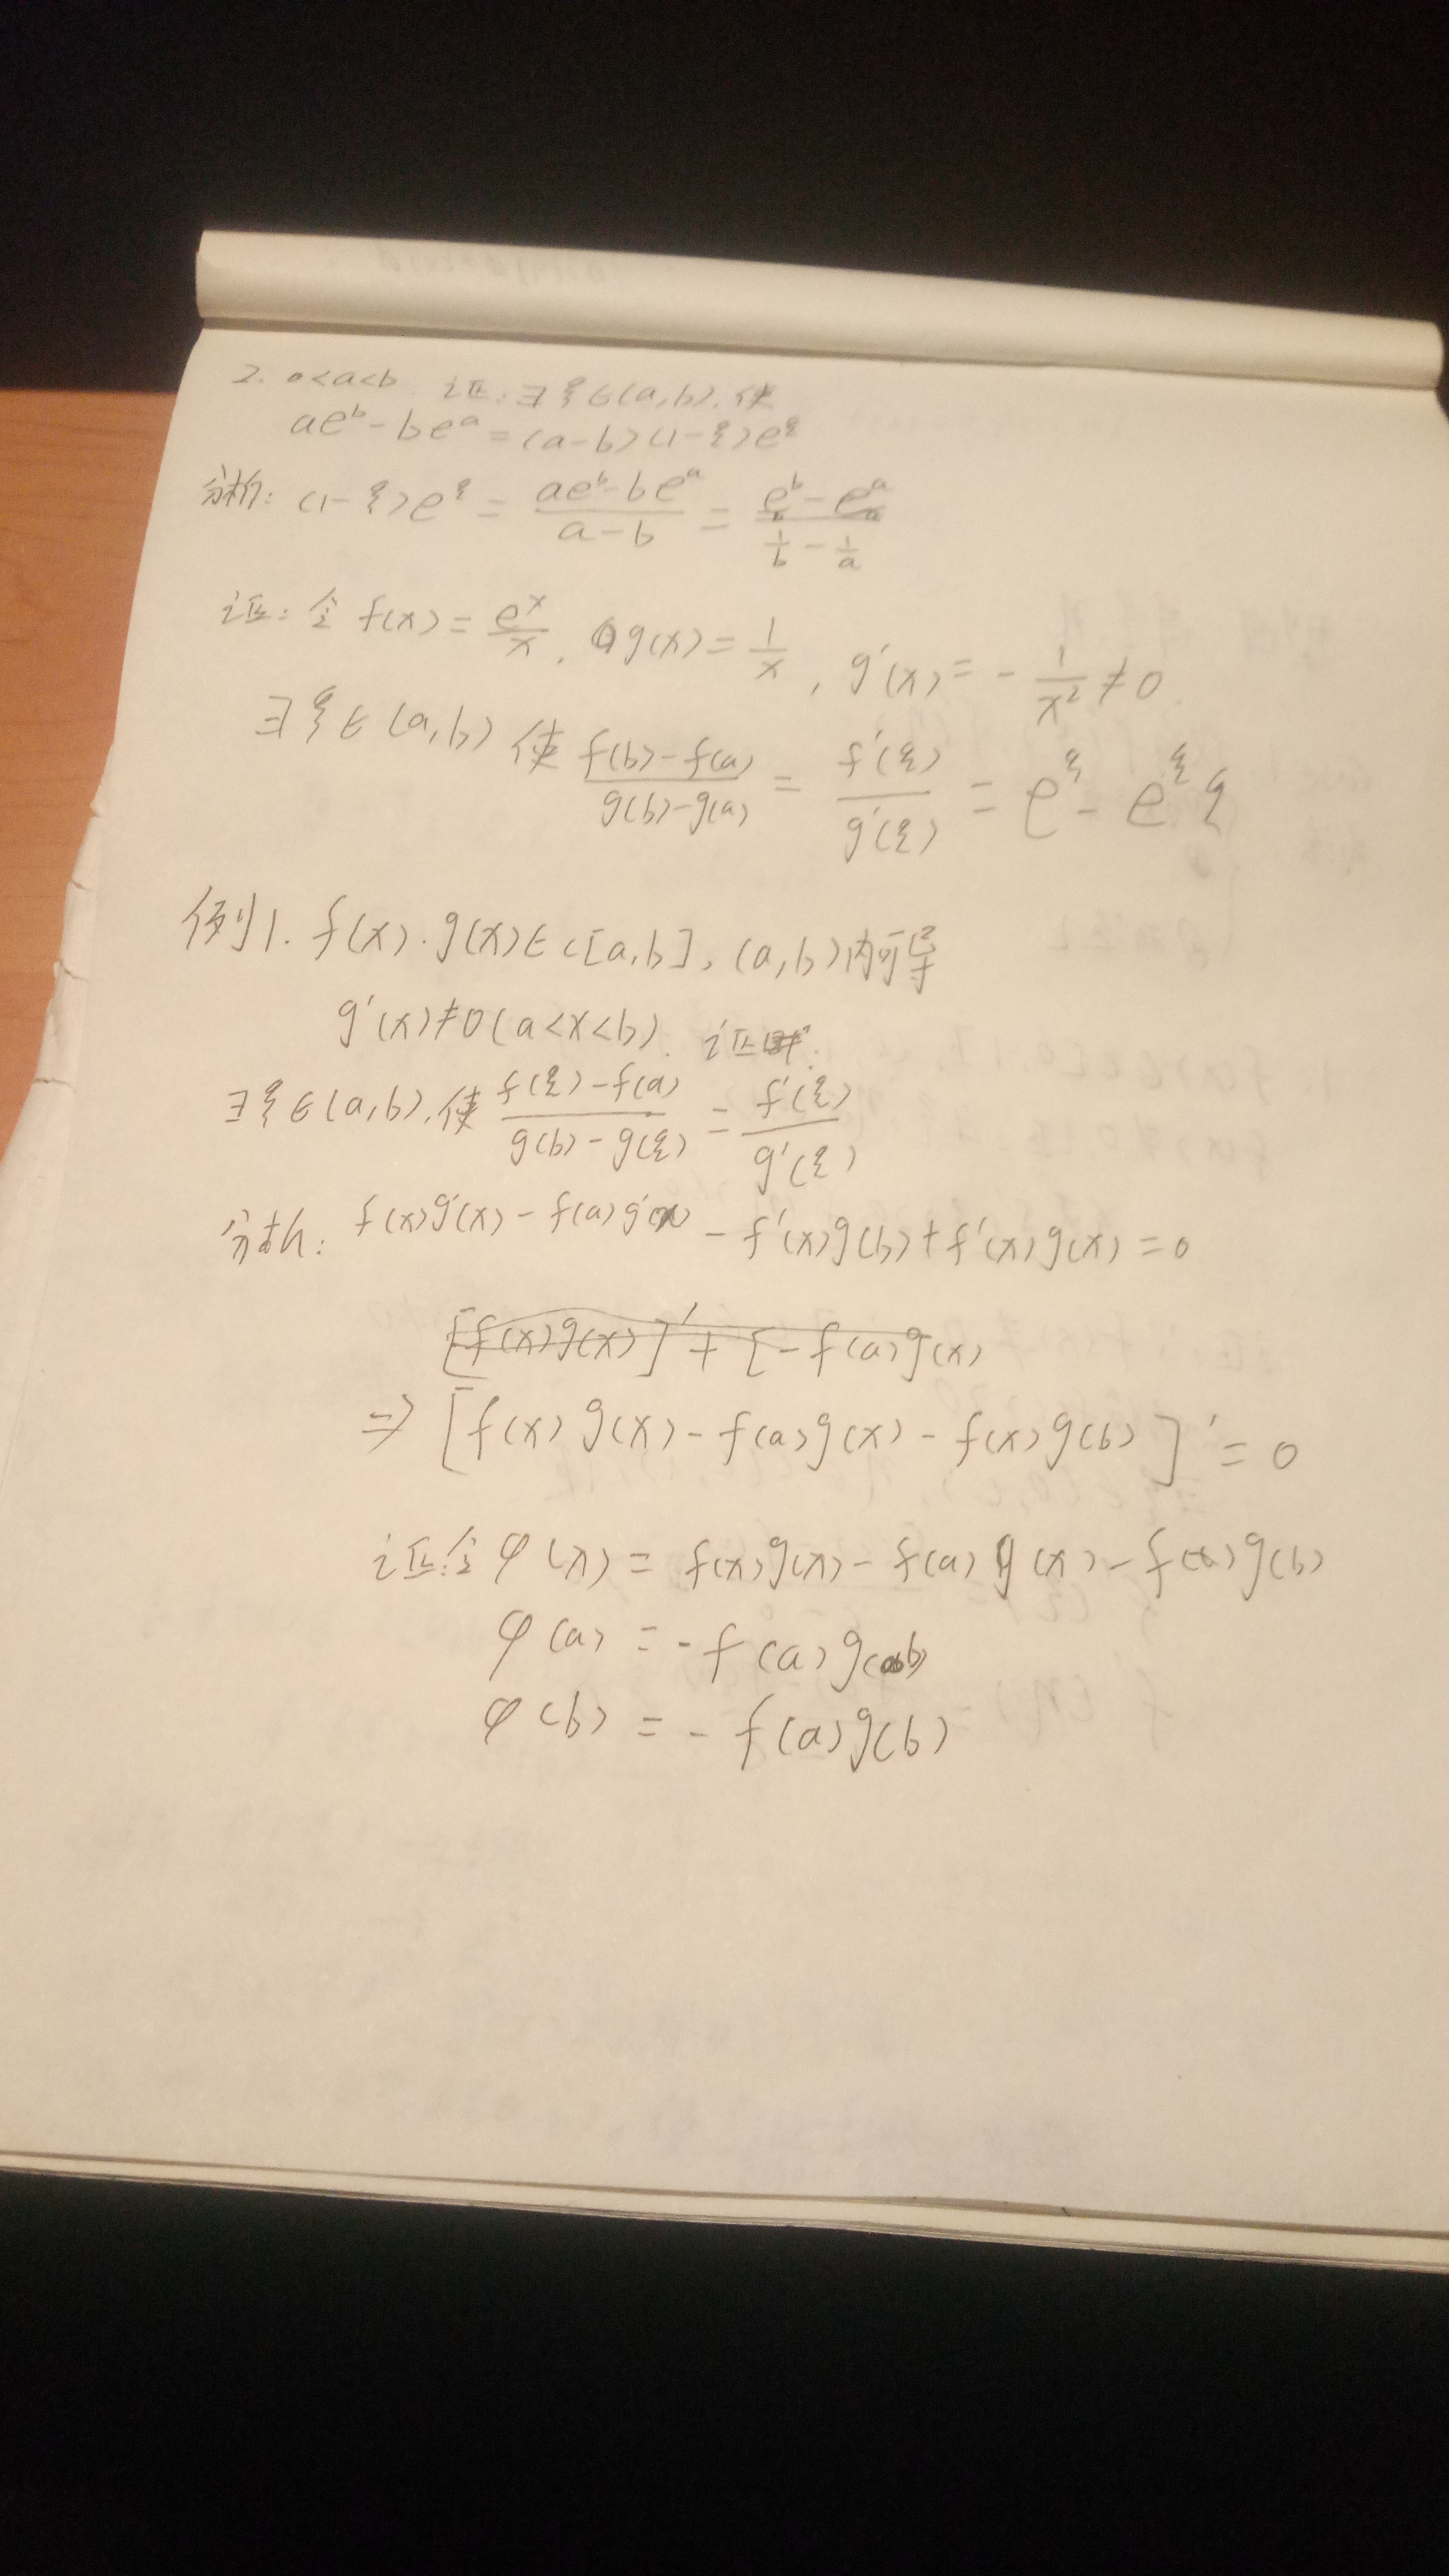 2. 0<a<b. 证:∃ξ∈(a,b).使
ae^b-be^a=(a-b)(1-ξ)e^ξ
分析: (1-ξ)e^ξ = \frac{ae^b-be^a}{a-b} = \frac{\frac{e^b}{b}-\frac{e^a}{a}}{\frac{1}{b}-\frac{1}{a}}
证: 令 f(x)=\frac{e^x}{x}, g(x)=\frac{1}{x}, g'(x)=-\frac{1}{x^2}≠0
∃ξ∈(a,b) 使 \frac{f(b)-f(a)}{g(b)-g(a)} = \frac{f'(ξ)}{g'(ξ)} = e^ξ-e^ξξ
例1. f(x).g(x)∈c[a,b],(a,b)内可导
g'(x)≠0(a<x<b). 证
∃ξ∈(a,b).使 \frac{f(ξ)-f(a)}{g(b)-g(ξ)} = \frac{f'(ξ)}{g'(ξ)}
分析: f(x)g'(x)-f(a)g'(x)-f'(x)g(b)+f'(x)g(x)=0
[f(x)g(x)]'+[-f(a)g(x)
⇒[f(x)g(x)-f(a)g(x)-f(x)g(b)]'=0
证:令φ(x)=f(x)g(x)-f(a)g(x)-f(x)g(b)
φ(a)=-f(a)g(b)
φ(b)=-f(a)g(b)